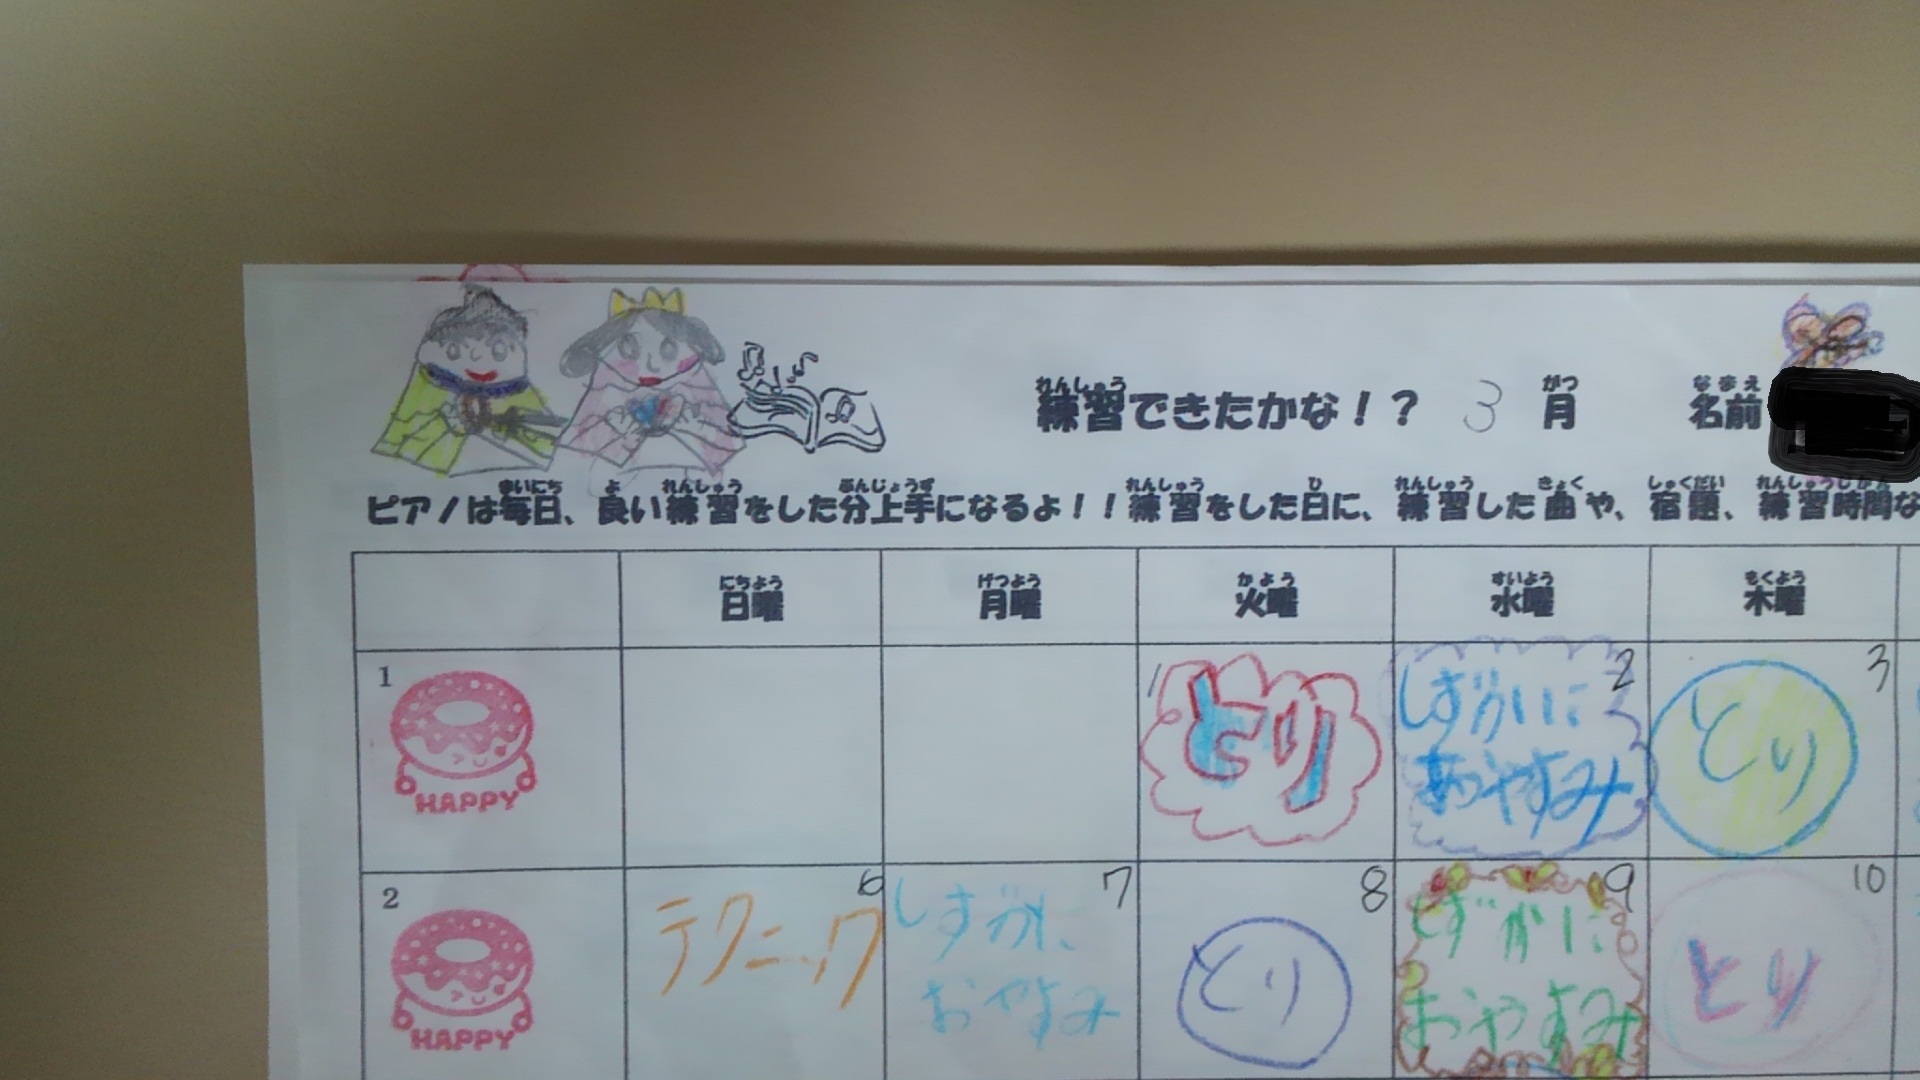 練習できたかな！？ 3月 名前
ピアノは毎日、良い練習をした分上手になるよ！！練習をした日に、練習した曲や、宿題、練習時間な
日曜 月曜 火曜 水曜 木曜
1 HAPPY
1 とり
2 しずかに
おやすみ
3 とり
2 HAPPY
6 テクニック
7 しずかに
おやすみ
8 とり
9 しずかに
おやすみ
10 とり